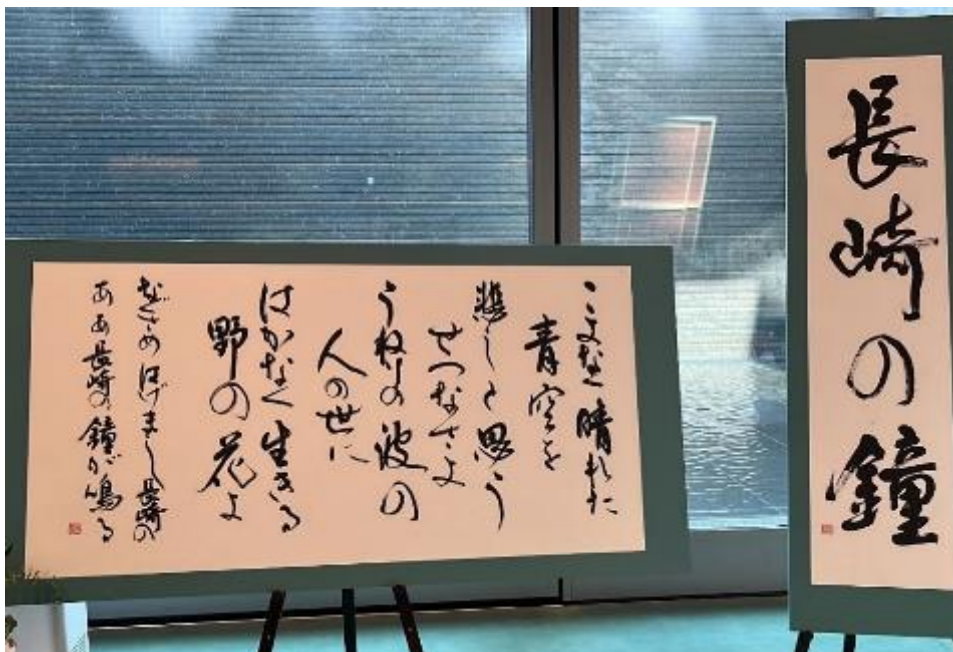 こよなく晴れた
青空を
悲しと思う
せつなさよ
うねりの波の
人の世に
はかなく生きる
野の花よ
なぐさめはげまし長崎の
ああ長崎の鐘が鳴る
長崎の鐘